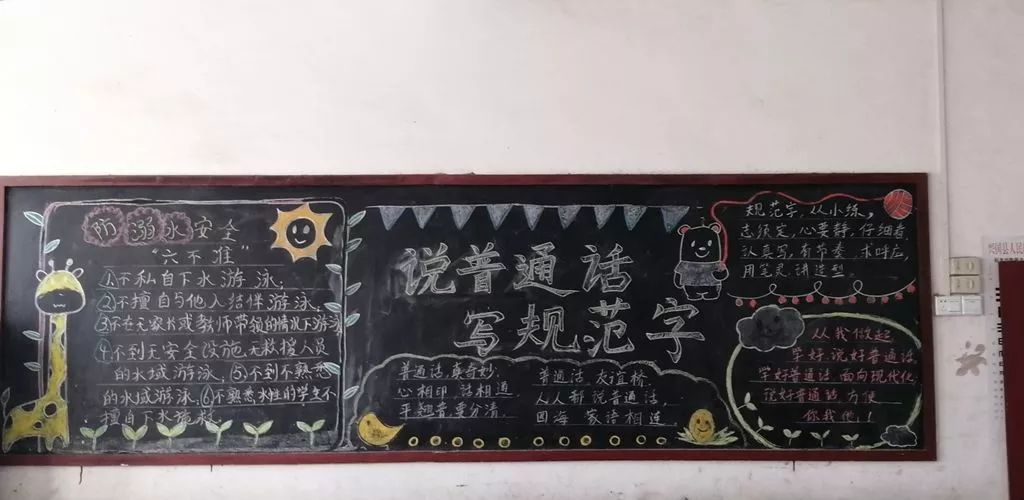 防溺水安全
“六不准”
①不私自下水游泳；
②不擅自与他人结伴游泳；
③不在无家长或教师带领的情况下游泳
④不到无安全设施、无救援人员
的水域游泳，⑤不到不熟悉
的水域游泳，⑥不熟悉水性的学生不
擅自下水施救
说普通话
写规范字
普通话，真奇妙
心相印 话相通
平翘音 要分清
普通话，友谊桥
人人都说普通话，
四海 家语相连
规范字，从小练，
志须定，心要静，仔细看
认真写，有节奏 求呼应
用笔灵 讲造型
从我做起
学好、说好普通话
学好普通话 面向现代化
说好普通话 方便
你我他！